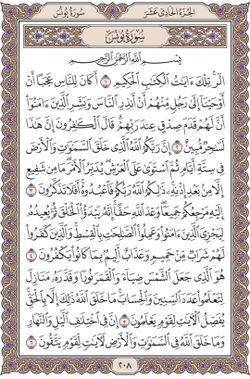 الجزء الحادي عشر
سورة يونس
سُورَةُ يُونُسَ
بِسْمِ ٱللَّهِ ٱلرَّحْمَٰنِ ٱلرَّحِيمِ
الٓر تِلْكَ ءَايَٰتُ ٱلْكِتَٰبِ ٱلْحَكِيمِ ١ أَكَانَ لِلنَّاسِ عَجَبًا أَنْ
أَوْحَيْنَآ إِلَىٰ رَجُلٍ مِّنْهُمْ أَنْ أَنذِرِ ٱلنَّاسَ وَبَشِّرِ ٱلَّذِينَ ءَامَنُوٓا۟
أَنَّ لَهُمْ قَدَمَ صِدْقٍ عِندَ رَبِّهِمْ قَالَ ٱلْكَٰفِرُونَ إِنَّ هَٰذَا
لَسَٰحِرٌ مُّبِينٌ ٢ إِنَّ رَبَّكُمُ ٱللَّهُ ٱلَّذِى خَلَقَ ٱلسَّمَٰوَٰتِ وَٱلْأَرْضَ
فِى سِتَّةِ أَيَّامٍ ثُمَّ ٱسْتَوَىٰ عَلَى ٱلْعَرْشِ يُدَبِّرُ ٱلْأَمْرَ مَا مِن شَفِيعٍ
إِلَّا مِنۢ بَعْدِ إِذْنِهِۦ ذَٰلِكُمُ ٱللَّهُ رَبُّكُمْ فَٱعْبُدُوهُ أَفَلَا تَذَكَّرُونَ ٣
إِلَيْهِ مَرْجِعُكُمْ جَمِيعًا وَعْدَ ٱللَّهِ حَقًّا إِنَّهُۥ يَبْدَؤُا۟ ٱلْخَلْقَ ثُمَّ يُعِيدُهُۥ
لِيَجْزِىَ ٱلَّذِينَ ءَامَنُوا۟ وَعَمِلُوا۟ ٱلصَّٰلِحَٰتِ بِٱلْقِسْطِ وَٱلَّذِينَ كَفَرُوا۟
لَهُمْ شَرَابٌ مِّنْ حَمِيمٍ وَعَذَابٌ أَلِيمٌۢ بِمَا كَانُوا۟ يَكْفُرُونَ ٤
هُوَ ٱلَّذِى جَعَلَ ٱلشَّمْسَ ضِيَآءً وَٱلْقَمَرَ نُورًا وَقَدَّرَهُۥ مَنَازِلَ
لِتَعْلَمُوا۟ عَدَدَ ٱلسِّنِينَ وَٱلْحِسَابَ مَا خَلَقَ ٱللَّهُ ذَٰلِكَ إِلَّا بِٱلْحَقِّ
يُفَصِّلُ ٱلْءَايَٰتِ لِقَوْمٍ يَعْلَمُونَ ٥ إِنَّ فِى ٱخْتِلَٰفِ ٱلَّيْلِ وَٱلنَّهَارِ
وَمَا خَلَقَ ٱللَّهُ فِى ٱلسَّمَٰوَٰتِ وَٱلْأَرْضِ لَءَايَٰتٍ لِّقَوْمٍ يَتَّقُونَ ٦
٢٠٨